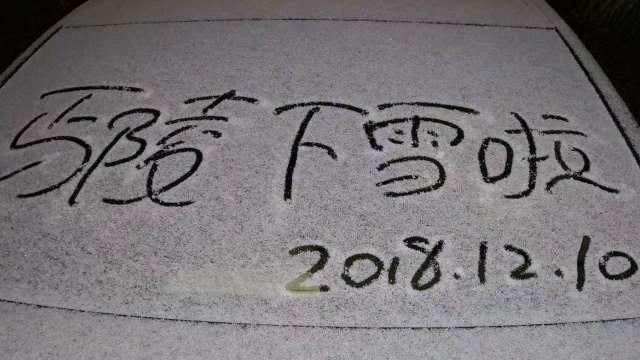 鄢陵下雪啦
2018.12.10